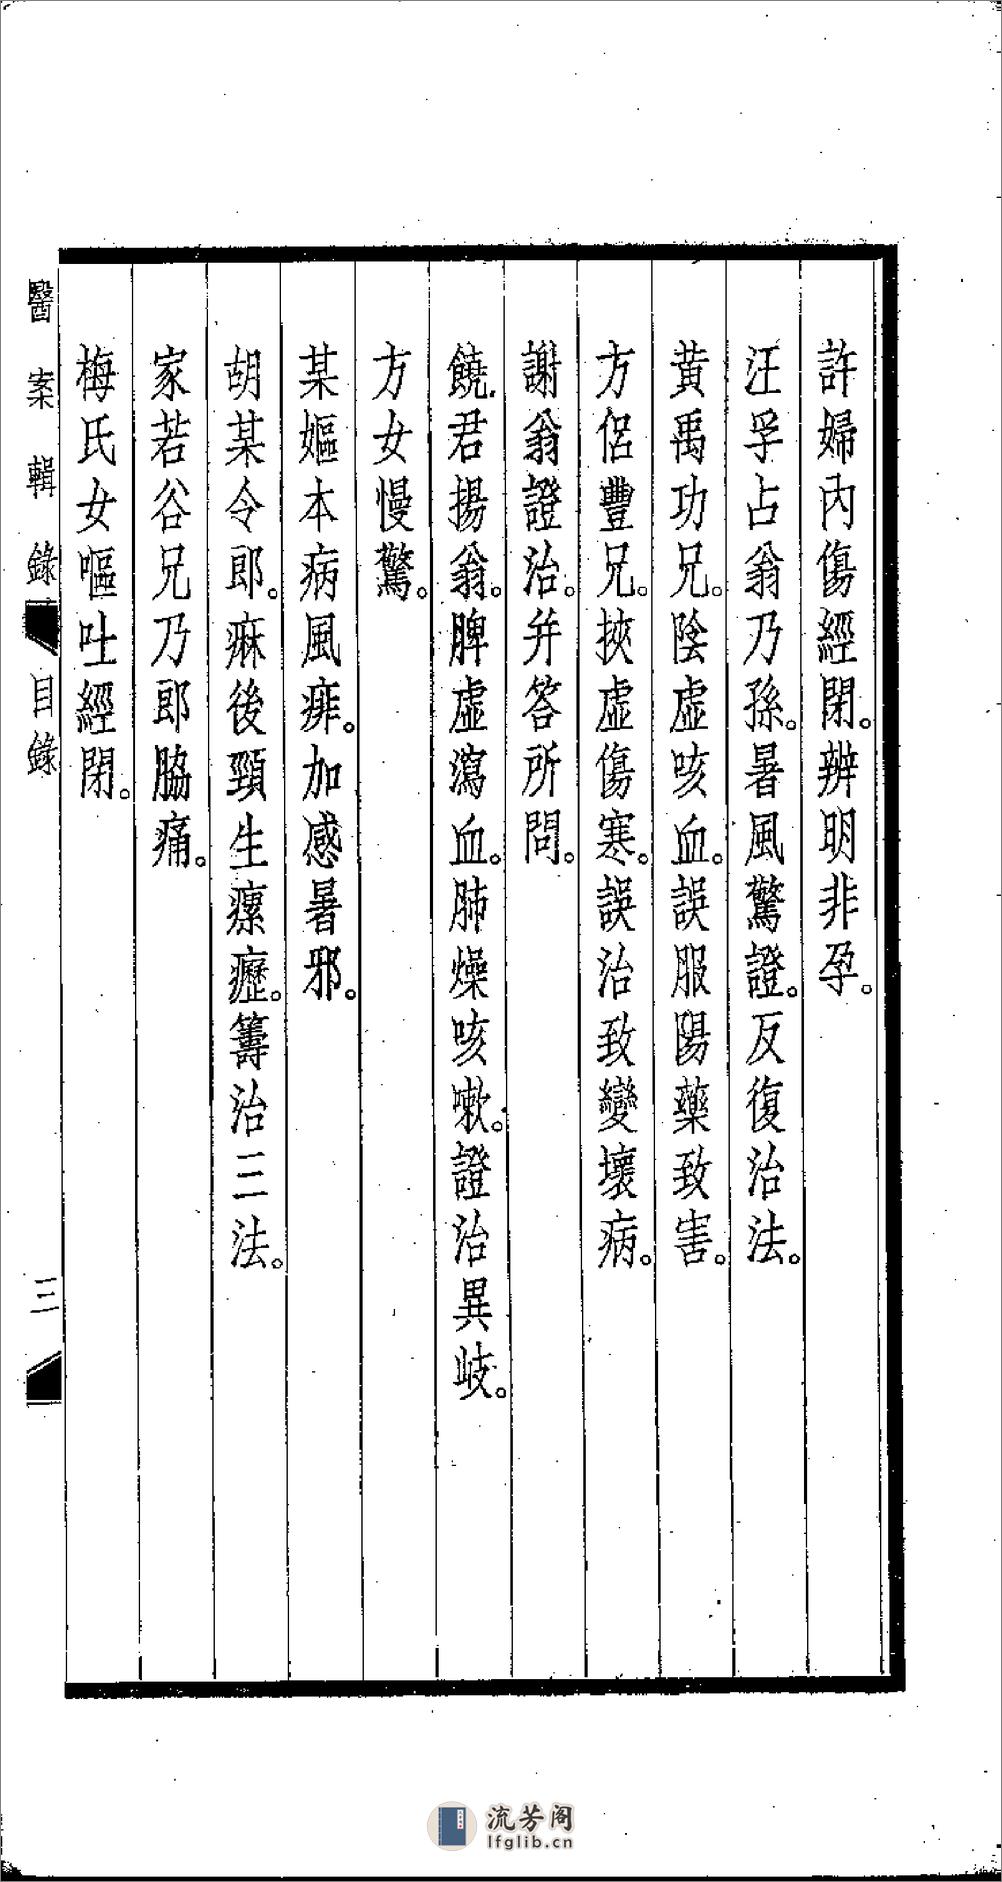 許婦內傷經閉。辨明非孕。
汪孚占翁乃孫。暑風驚證。反復治法。
黃禹功兄。陰虛咳血。誤服陽藥致害。
方侶豐兄。挾虛傷寒。誤治致變壞病。
謝翁證治。并答所問。
饒君揚翁。脾虛瀉血。肺燥咳嗽。證治異歧。
方女慢驚。
某嫗本病風痱。加感暑邪。
胡某令郎。痳後頸生瘰癧。籌治三法。
家若谷兄乃郎脇痛。
梅氏女嘔吐經閉。
醫案輯錄 目錄 三
流芳阁
lfglib.cn